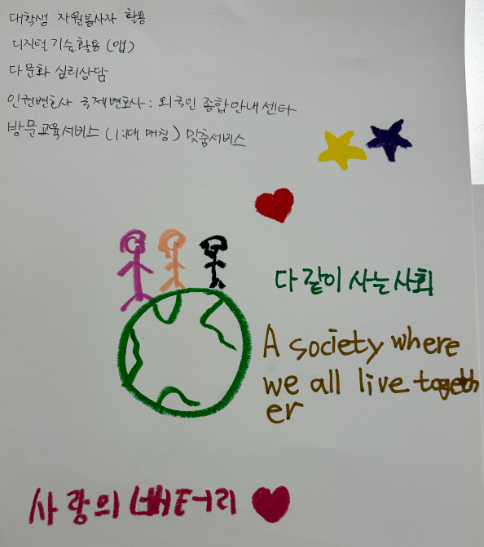 대학생 자원봉사자 활용
디지털기술활용 (앱)
다문화 심리상담
인권변호사 국제변호사 : 외국인 종합안내센타
방문교육서비스 (1:1대 매칭) 맞춤서비스
다같이 사는 사회
A society where
we all live togeth
er
사랑의 배터리